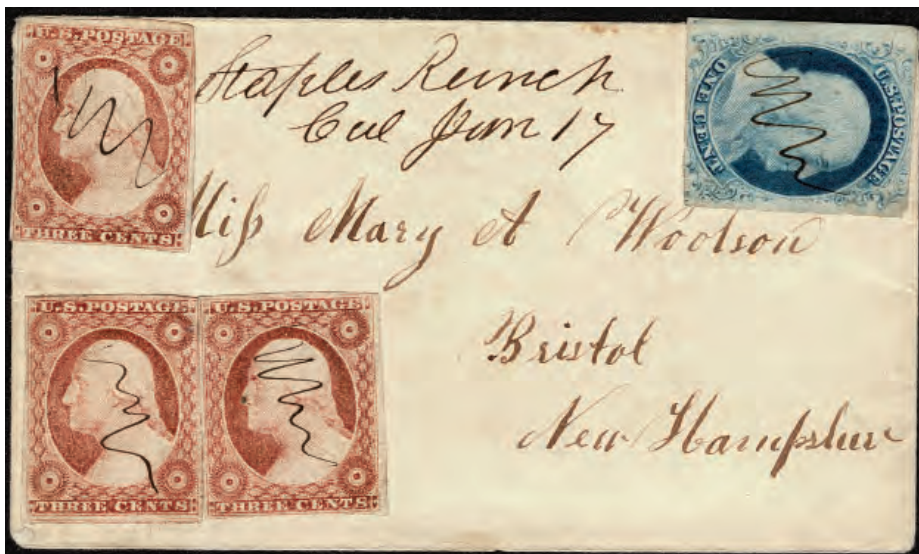 U.S. POSTAGE
THREE CENTS
Staples Runch
Cal Jan 17
U.S. POSTAGE
ONE CENT
Miss Mary A Woolson
Bristol
New Hampshire
U.S. POSTAGE
THREE CENTS
U.S. POSTAGE
THREE CENTS